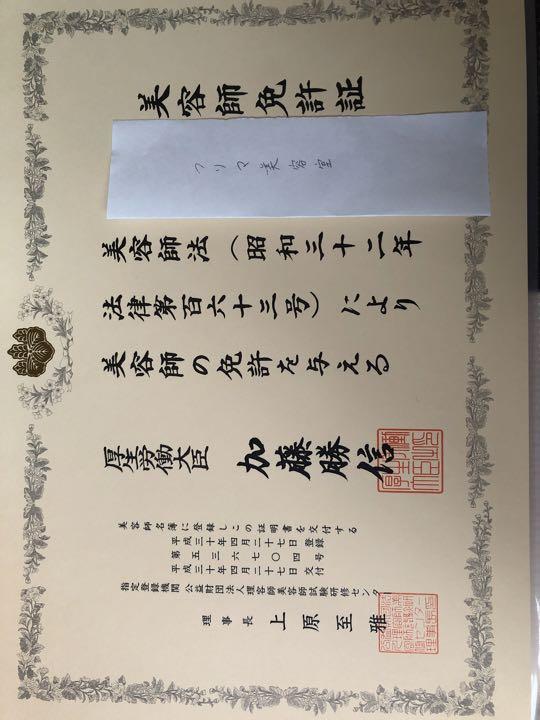 美容師免許証
フリマ美容室
美容師法(昭和三十二年
法律第百六十三号)により
美容師の免許を与える
厚生労働大臣 加藤勝信
美容師名簿に登録しこの証明書を交付する
平成三十年四月二十七日登録
第五三六七〇四号
平成三十年四月二十七日交付
指定登録機関 公益財団法人理容師美容師試験研修センター
理事長 上原至雅